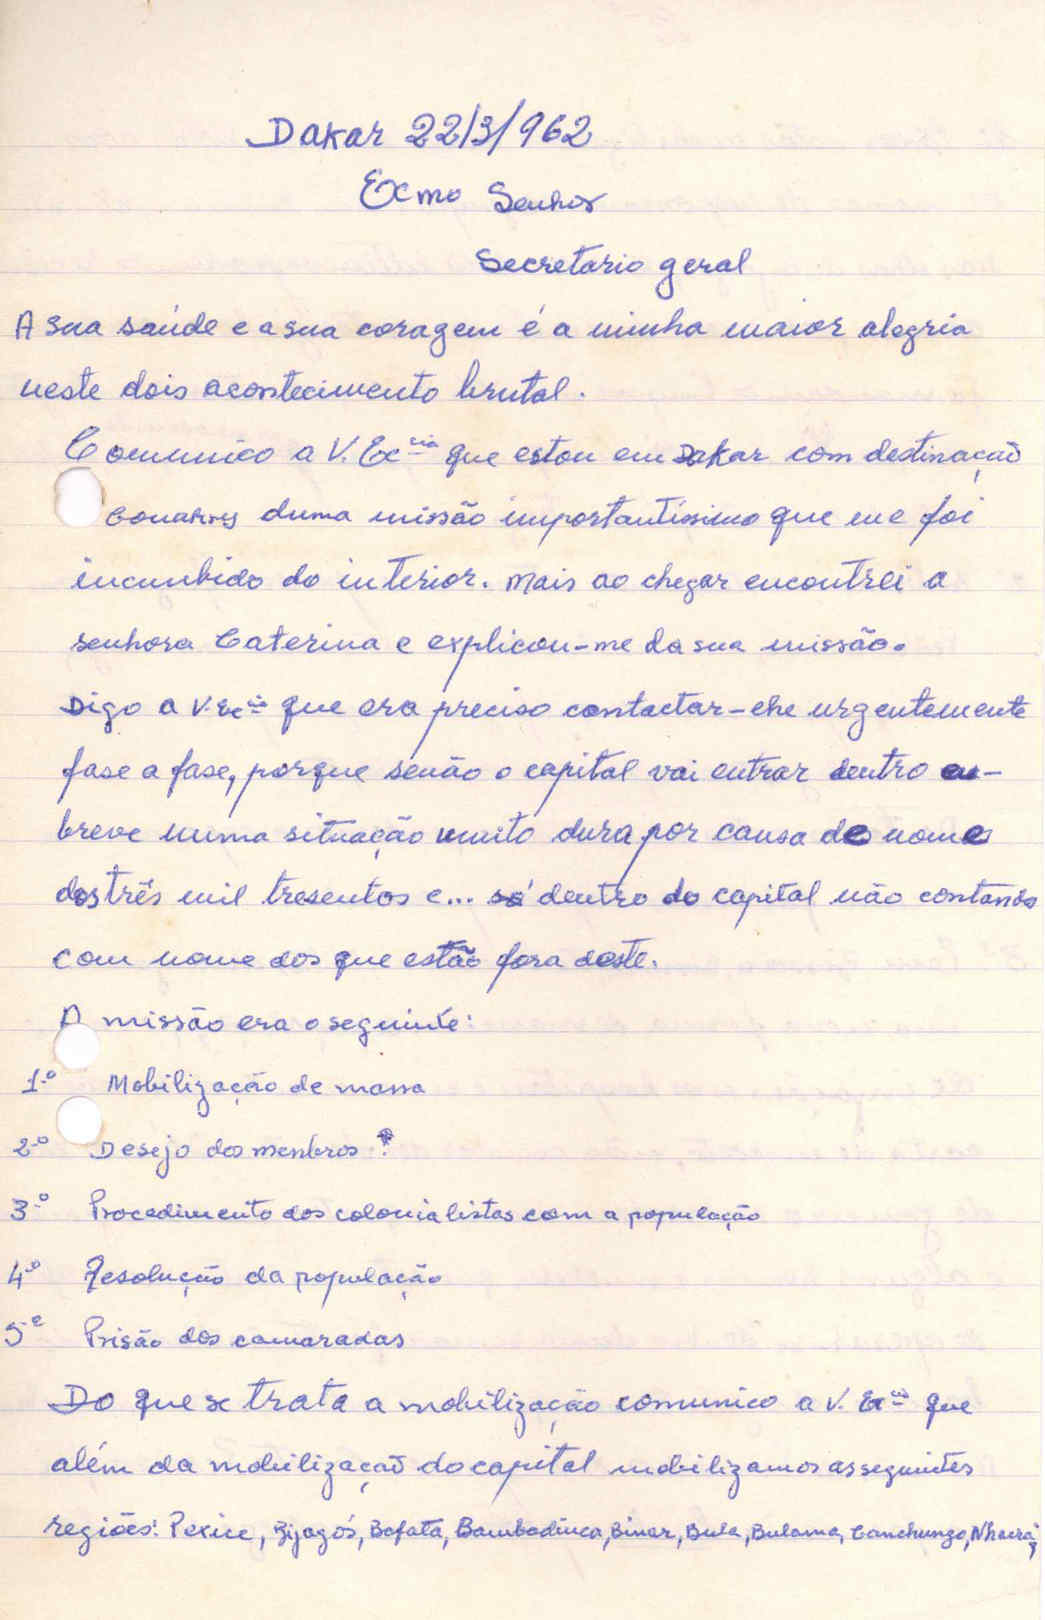 Dakar 22/3/962
Excmo Senhor
Secretario geral
A sua saúde e a sua coragem é a minha maior alegria
neste dois acontecimento brutal.
Comunico a V. Eccia que estou em Dakar com destinaçaõ
Conakry duma missão importantíssimo que me foi
incunbido do interior. Mais ao chegar encontrei a
senhora Caterina e explicou-me da sua missão.
Digo a V. Ecia que era preciso contactar-che urgentemente
fase a fase, porque senão o capital vai entrar dentro em-
breve numa situação muito dura por causa de nomes
dos três mil tresentos e... só dentro do capital não contando
com nome dos que estão fora deste.
A missão era o seguinte:
1.º Mobilização de massa
2.º Desejo dos menbros
3.º Procedimento dos colonialistas com a população
4.º Resolução da população
5.e Prisão dos camaradas
Do que se trata a mobilização comunico a V. Ecia que
além da mobilizaçaõ do capital mobilizamos as seguintes
regiões: Pexice, Bijagós, Bafata, Bambadinca, Binar, Bula, Bulama, Canchungo, Nhacra,